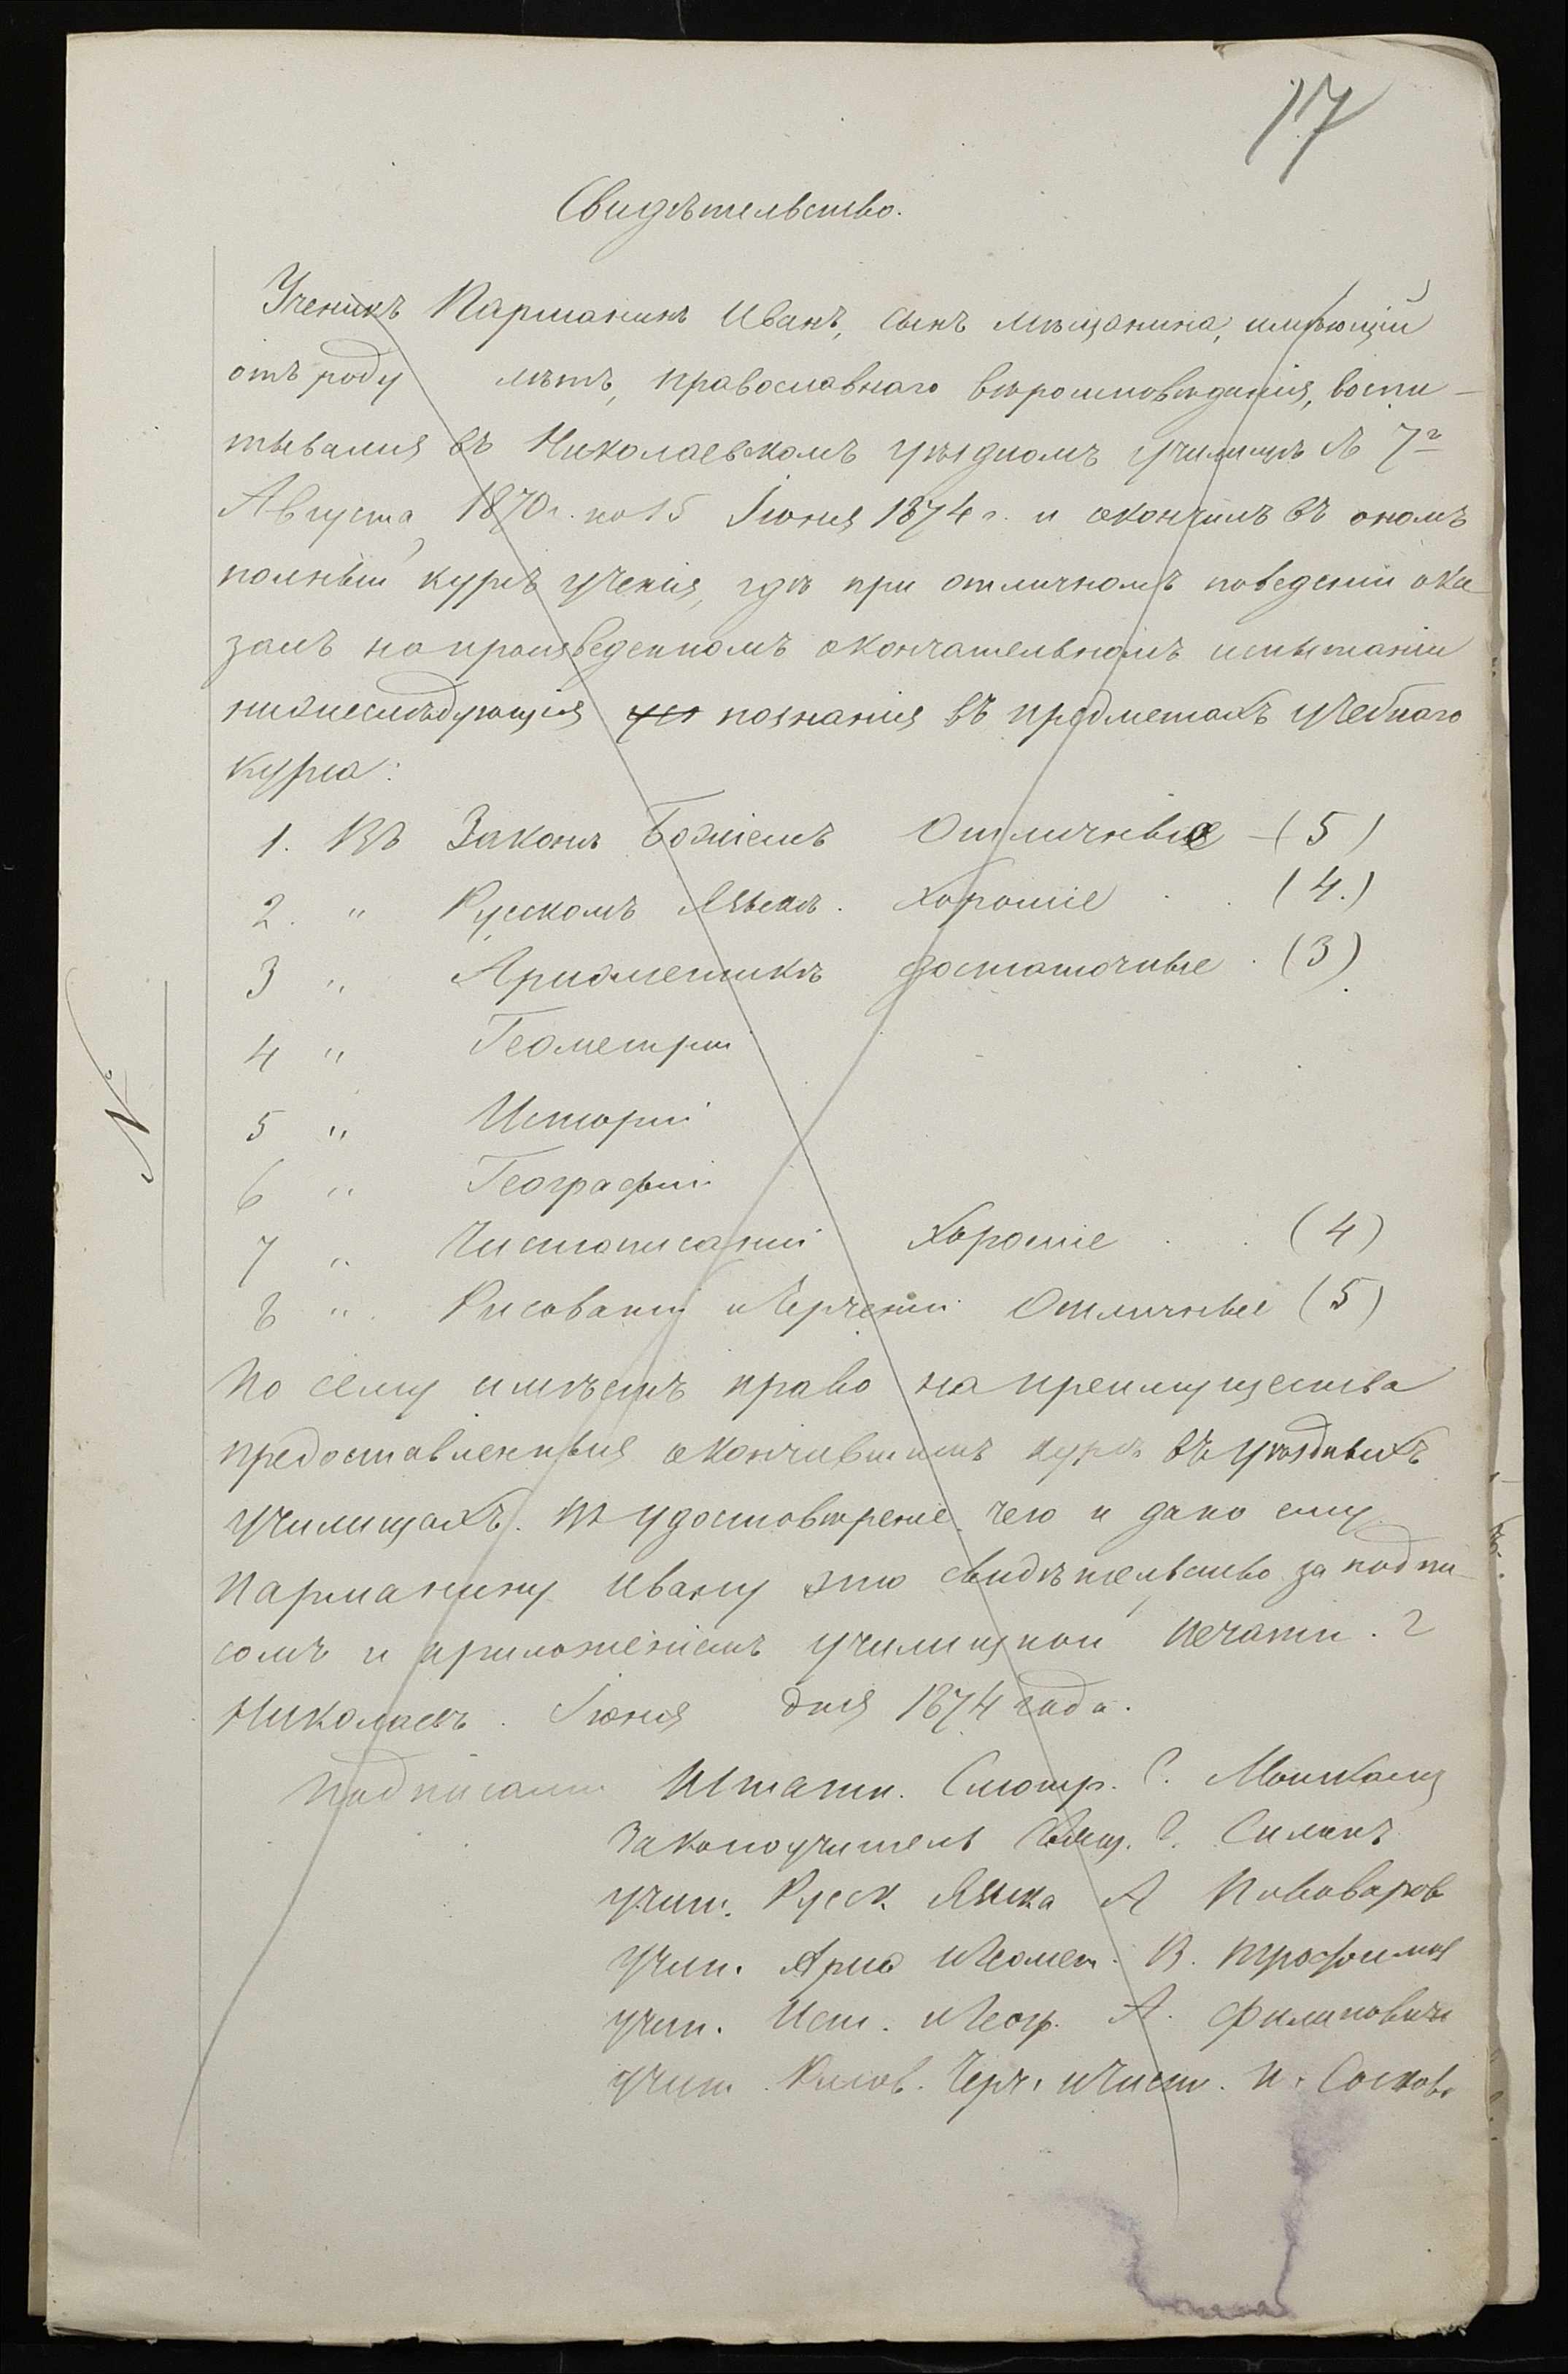 17
Свидѣтельство.
Ученикъ Парманинъ Иванъ, сынъ мѣщанина, имѣющій
отъ роду лѣтъ, православнаго вѣроисповѣданія, воспи-
тывался въ Николаевскомъ уѣздномъ училищѣ съ 7го
Августа 1870 г. по 15 Іюня 1874 г. и окончилъ въ ономъ
полный курсъ ученія, гдѣ при отличномъ поведеніи ока
залъ на произведенномъ окончательномъ испытаніи
нижеслѣдующія познанія въ предметахъ учебнаго
курса:
1. Въ Законѣ Божіемъ Отличныя - (5)
2. " Русскомъ Языкѣ. Хорошіе . . (4.)
3 " Ариѳметикѣ достаточные . (3)
4 " Геометріи
5 " Исторіи
6 " Географіи
7 " Чистописаніи Хорошіе . . (4)
8 " Рисованіи и Черченіи Отличные (5)
По сему имѣетъ право на преимущества
предоставленныя окончившимъ курсъ въ уѣздныхъ
училищахъ. Въ удостовѣреніе чего и дано ему
Парманину Ивану это свидѣтельство за подпи-
сомъ и приложеніемъ училищной печати. Г
Николаевъ. Іюня дня 1874 года.
Подписали Штатн. Смотр. С.
Законоучитель Свящ.
Учит. Русск. Языка А Пивоваров
Учит. Ариѳ и Геомет. В. Трофимов
Учит. Ист. и Геогр. А. Филиповичъ
Учит. Рисов. Черч. и Чист. И. Сосновъ
№